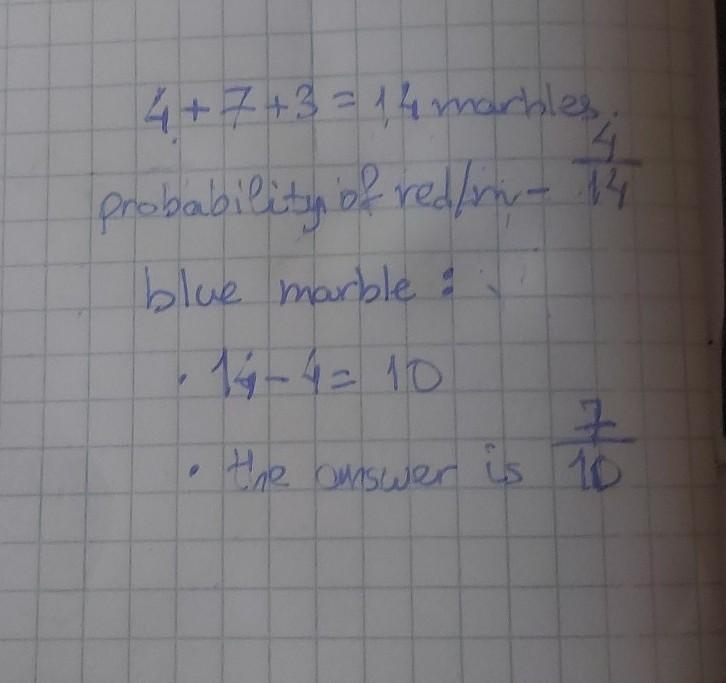 4 + 7 + 3 = 14 marbles.
probability of red/m - 4/14
blue marble :
• 14 - 4 = 10
• the answer is 7/10